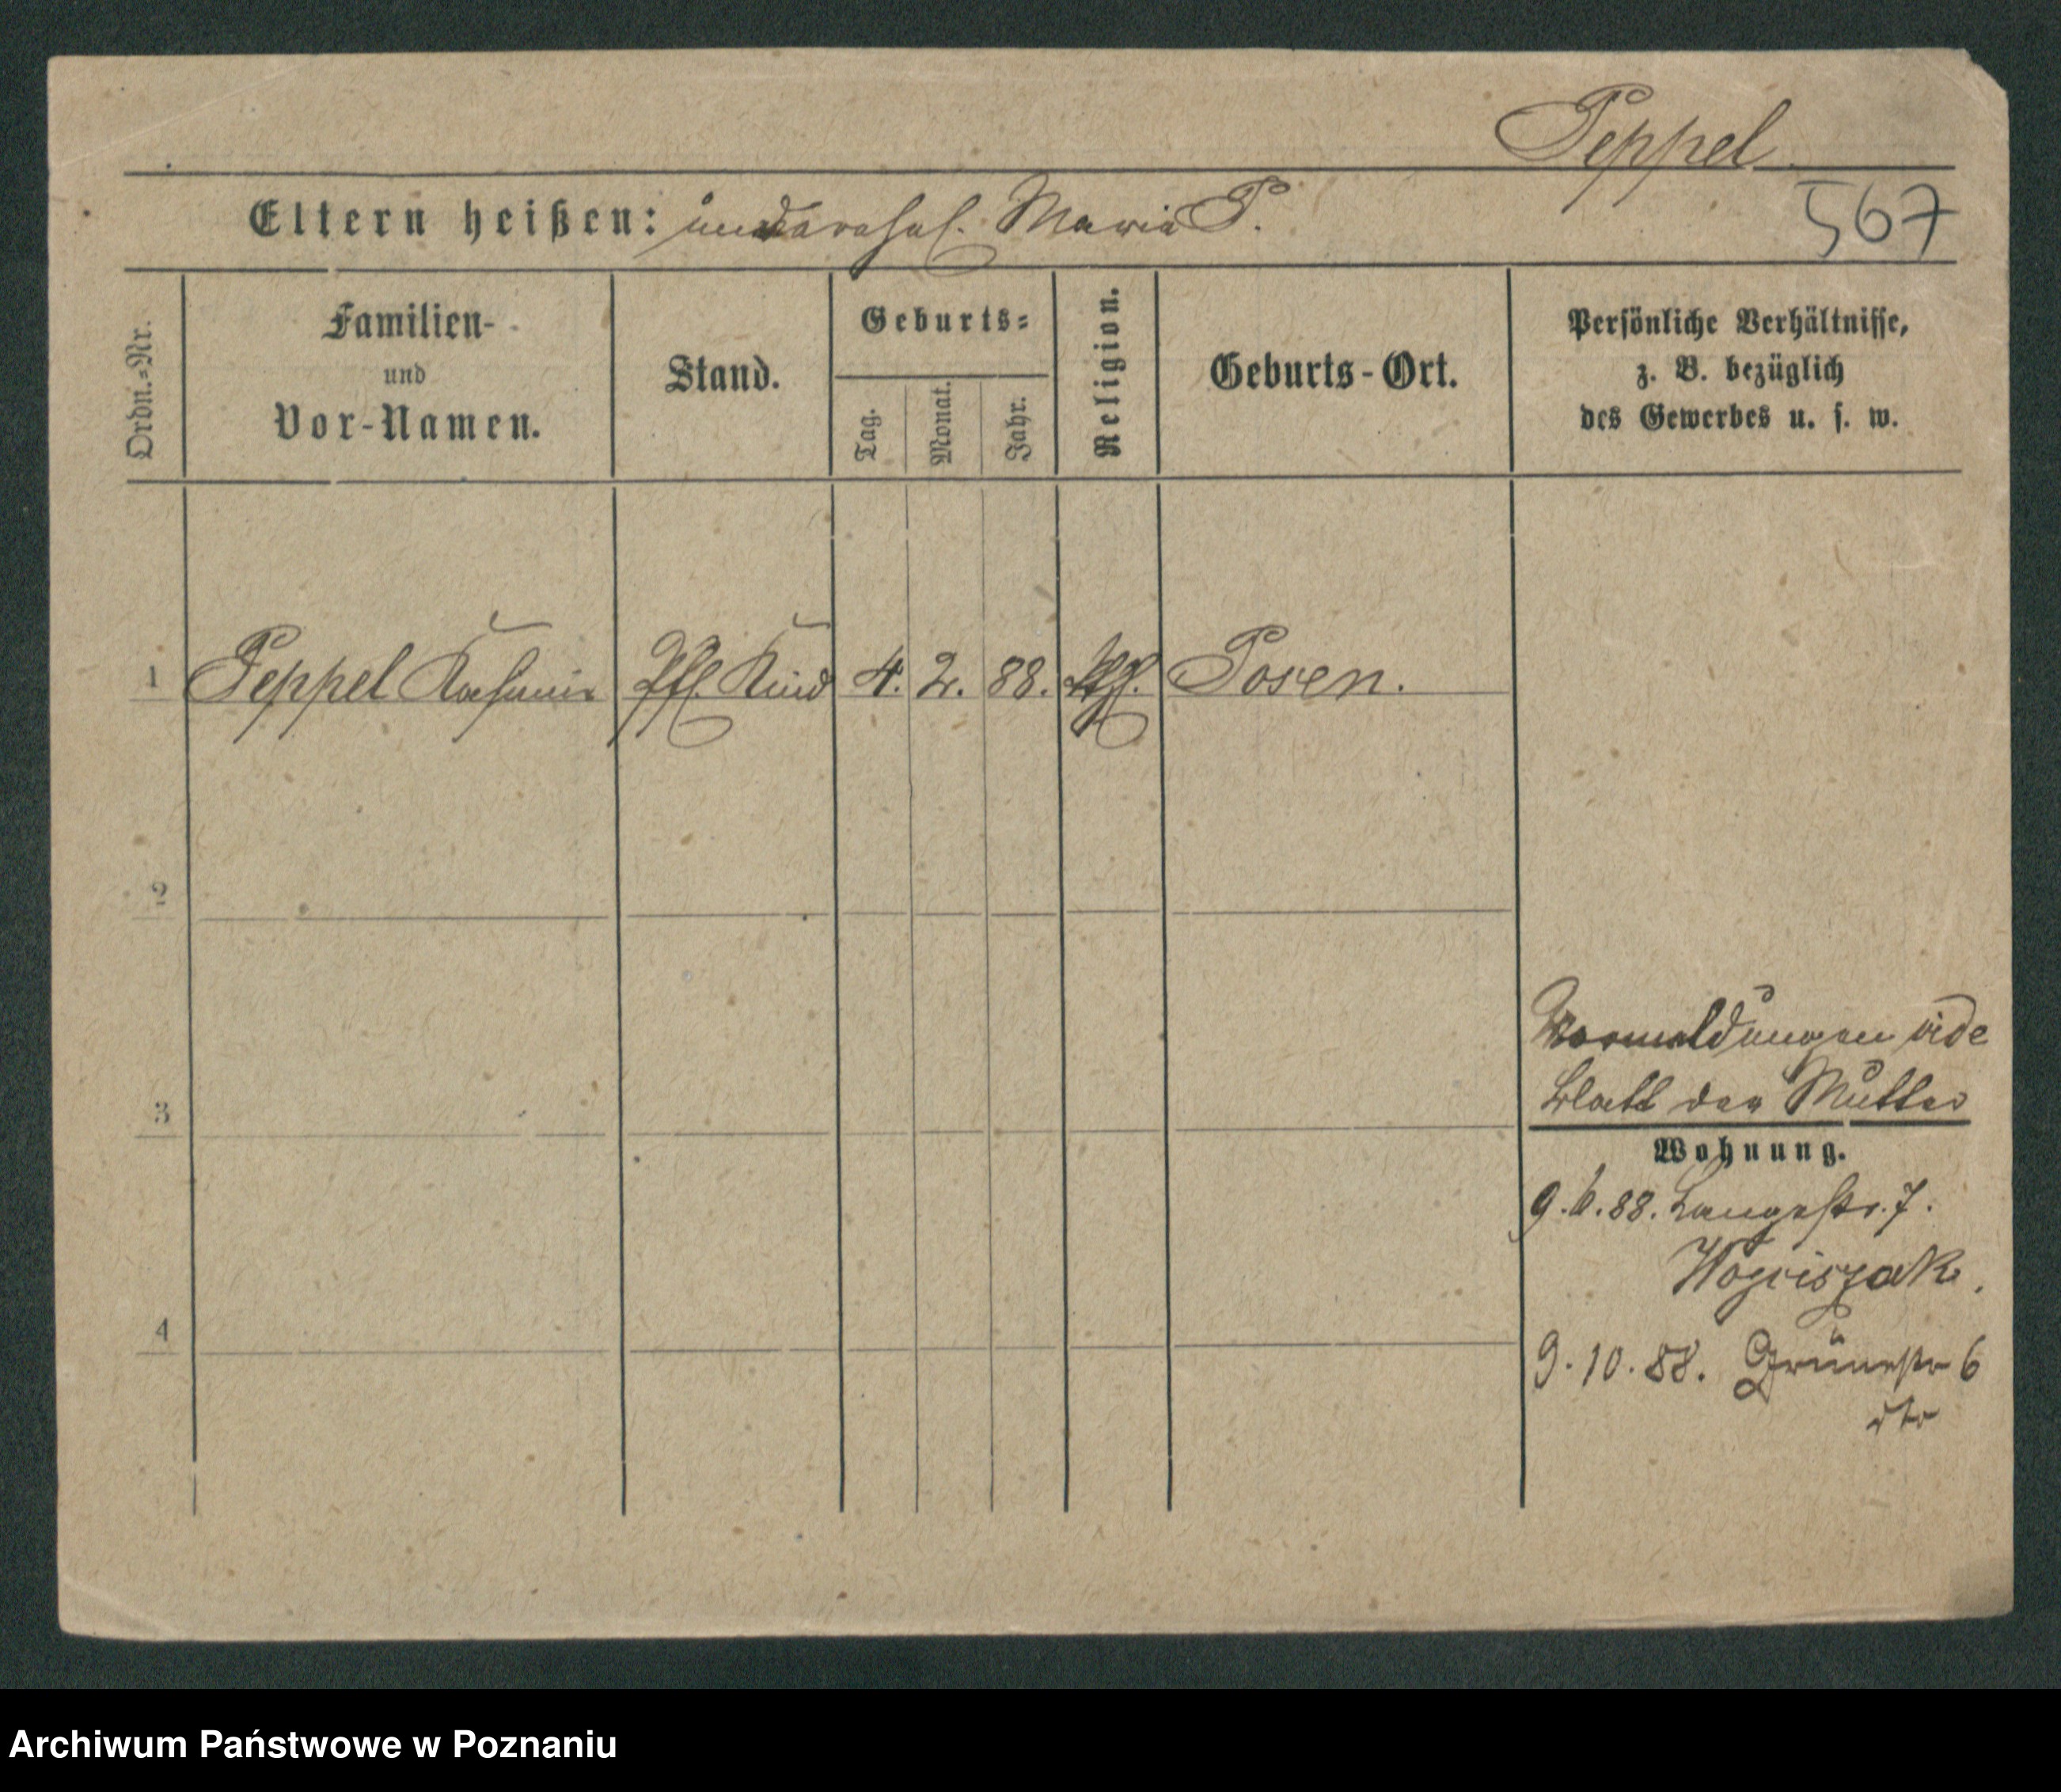 Peppel
567
Eltern heißen: unverehel. Maria P.
Ordn.-Nr.
Familien-
und
Vor-Namen.
Stand.
Geburts-
Tag.
Monat.
Jahr.
Religion.
Geburts-Ort.
Persönliche Verhältnisse,
z. B. bezüglich
des Gewerbes u. s. w.
1 Peppel Kasimir Pfl. Kind 4. 2. 88. kth. Posen.
2
3
4
Vormeldungen vide
Blatt der Mutter
Wohnung.
9. 6. 88. Langestr. 7.
9. 10. 88. Grünestr 6
dto
Archiwum Państwowe w Poznaniu